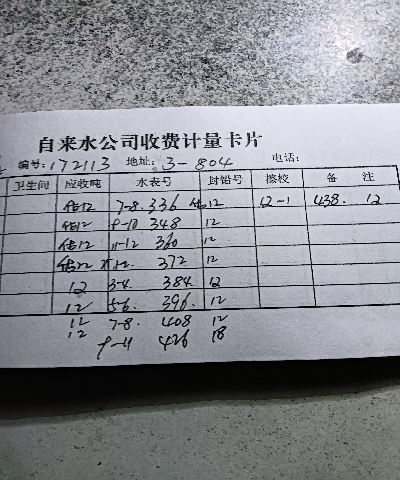 自来水公司收费计量卡片
编号: 172113 地址: 3-804 电话:
卫生间 应收吨 水表号 封铅号 擦校 备 注
估12 7-8. 336 估12 12-1 438. 12
估12 9-10 348 12
估12 11-12 360 12
估12 1-2. 372 12
12 3-4 384 12
12 5-6. 396. 12
12 7-8. 408 12
12 9-11 426 18